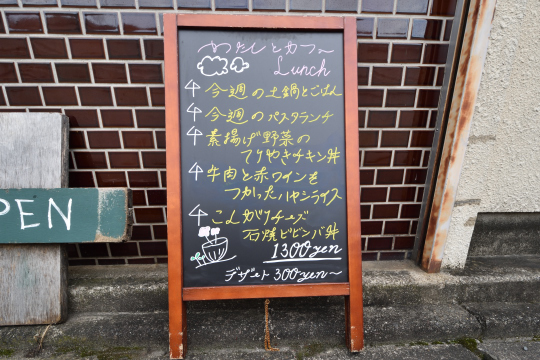 わたしとカフェ
Lunch
今週の土鍋とごはん
今週のパスタランチ
素揚げ野菜の
てりやきチキン丼
牛肉と赤ワインを
つかったハヤシライス
こんがりチーズ
石焼ビビンバ丼
1300yen
デザート 300yen〜
PEN